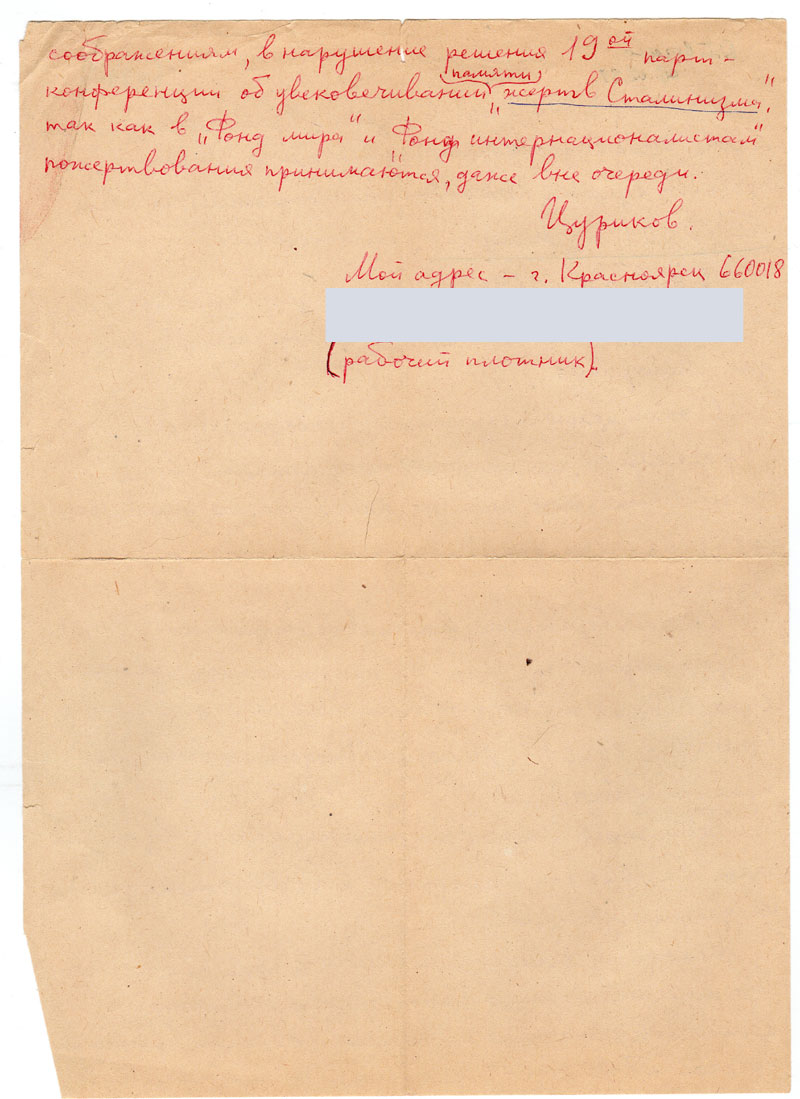 соображениям, в нарушение решения 19ой парт-
конференции об увековечивании памяти "жертв Сталинизма",
так как в "Фонд мира" и "Фонд интернационалистам"
пожертвования принимаются, даже вне очереди.
Цуриков.
Мой адрес - г. Красноярск 660018
(рабочий плотник).